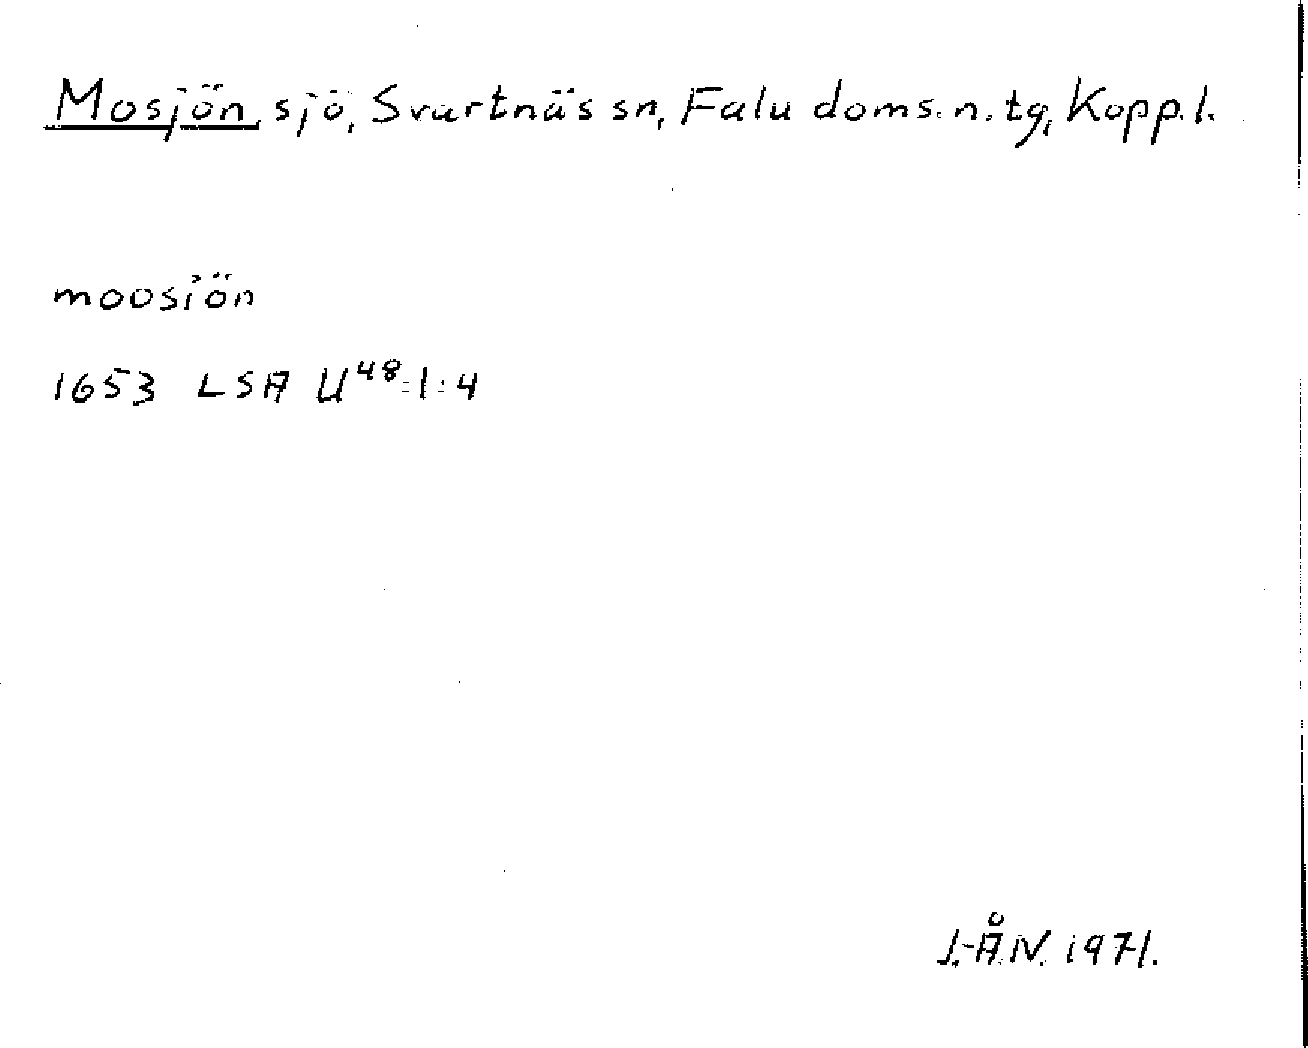 Mosjön, sjö, Svartnäs sn, Falu doms. n. tg, Kopp. l.
moosiön
1653 LSA U⁴⁸:1:4
J.-Å.N. 1971.